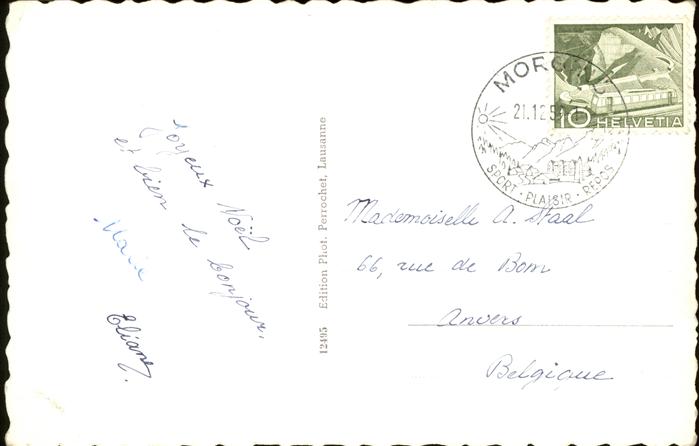 Joyeux Noël
et bien le bonjour.
Eliane.
12495 Edition Phot. Perrochet, Lausanne
10 HELVETIA
21.12.5
SPORT · PLAISIR · REPOS
Mademoiselle A. Staal
66, rue de Bom
Anvers
Belgique